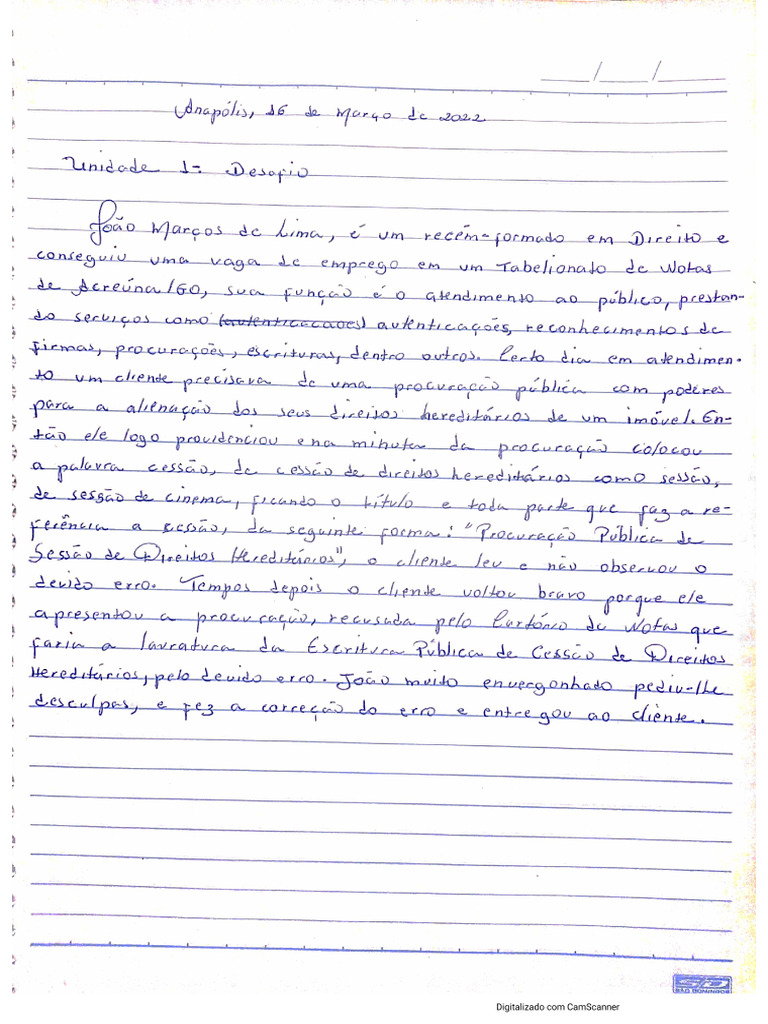 ___/___/___
Anapólis, 16 de Março de 2022
Unidade 1- Desafio
João Março de Lima, é um recém-formado em Direito e
conseguiu uma vaga de emprego em um Tabelionato de Notas
de Acreúna/GO, sua função é o atendimento ao público, prestan-
do serviços como (autenticacaoes) autenticações, reconhecimentos de
firmas, procurações, escrituras, dentro outros. Certo dia em atendimen-
to um cliente precisava de uma procuração pública com poderes
para a alienação dos seus direitos hereditários de um imóvel. En-
tão ele logo providenciou e na minuta da procuração colocou
a palavra cessão, de cessão de direitos hereditários como sessão,
de sessão de cinema, ficando o título e toda parte que faz a re-
ferência a cessão, da seguinte forma: "Procuração Pública de
Sessão de Direitos Hereditários", o cliente leu e não observou o
devido erro. Tempos depois o cliente voltou bravo porque ele
apresentou a procuração, recusada pelo Cartório de Notas que
faria a lavratura da Escritura Pública de Cessão de Direitos
Hereditários, pelo devido erro. João muito envergonhado pediu-lhe
desculpas, e fez a correção do erro e entregou ao cliente.
SÃO DOMINGOS
Digitalizado com CamScanner